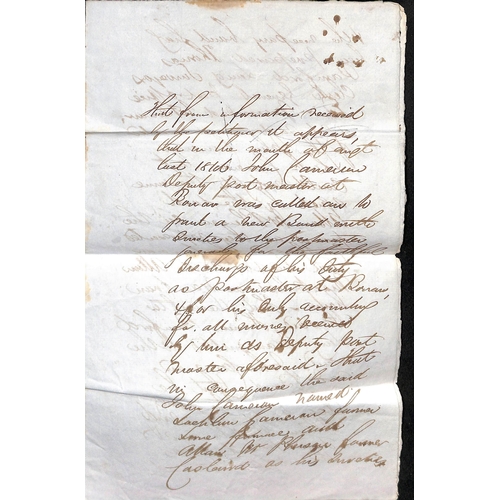 That from information received
by the petitioner it appears,
that in the month of Augt
last 1846 John Cameron
Deputy post master at
was called on to
a new Bond with
Sureties to the postmaster
general for the faithful
Discharge of his Duty
as postmaster at
& for his duly accounting
for all money received
by him as Deputy post
master aforesaid. That
in consequence the said
John Cameron named
Lachlan Cameron farmer
and
Allan farmer
as his sureties